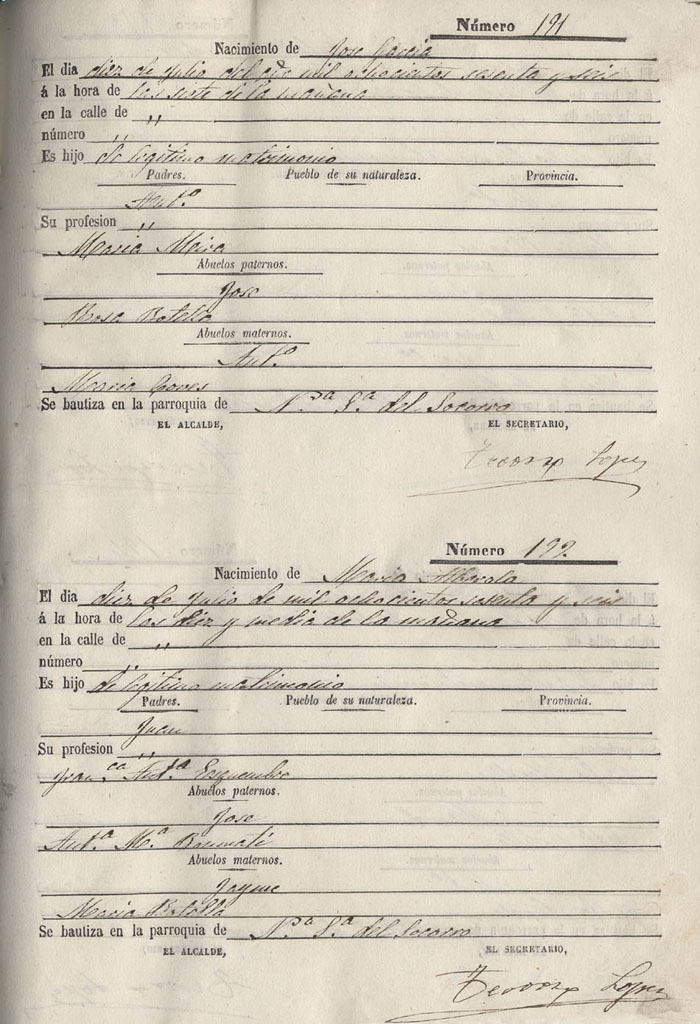 Número 191
Nacimiento de Jose Garcia
El dia diez de Julio del año mil ochocientos sesenta y seis
á la hora de las siete de la mañana
en la calle de ,,
número ,,
Es hijo de legitimo matrimonio
Padres. Pueblo de su naturaleza. Provincia.
Ant.º
Su profesion ,,
Maria Meira
Abuelos paternos.
Jose
Rosa Botella
Abuelos maternos.
Ant.º
Maria Goves
Se bautiza en la parroquia de N.ra S.ª del Socorro
EL ALCALDE, EL SECRETARIO,
Teodoro Lopez
Número 192
Nacimiento de Maria Alberola
El dia diez de Julio de mil ochocientos sesenta y seis
á la hora de las diez y media de la mañana
en la calle de ,,
número ,,
Es hijo de legitimo matrimonio
Padres. Pueblo de su naturaleza. Provincia.
Juan
Su profesion ,,
Fran.ca Ant.ª Esquembre
Abuelos paternos.
Jose
Ant.ª M.ª
Abuelos maternos.
Jayme
Maria Botella
Se bautiza en la parroquia de N.ra S.ª del Socorro
EL ALCALDE, EL SECRETARIO,
Teodoro Lopez